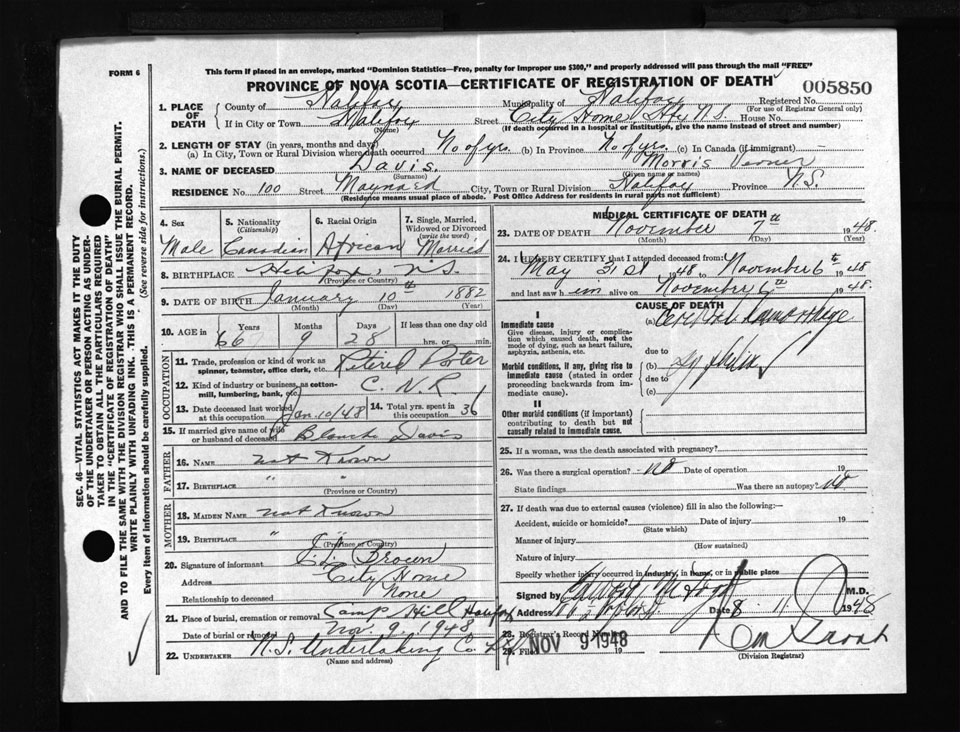 FORM 6
This form if placed in an envelope, marked "Dominion Statistics—Free, penalty for improper use $300," and properly addressed will pass through the mail "FREE"
PROVINCE OF NOVA SCOTIA—CERTIFICATE OF REGISTRATION OF DEATH
005850
1. PLACE OF DEATH
County of Halifax Municipality of Halifax Registered No.
(For use of Registrar General only)
If in City or Town Halifax Street City Home, Hfx N.S. House No.
(Name) (If death occurred in a hospital or institution, give the name instead of street and number)
2. LENGTH OF STAY (in years, months and days)
(a) In City, Town or Rural Division where death occurred No of yrs. (b) In Province No of yrs. (c) In Canada (if immigrant)
3. NAME OF DECEASED Davis. Morris Verner
(Surname) (Given name or names)
RESIDENCE No. 100 Street Maynard City, Town or Rural Division Halifax Province N.S.
(Residence means usual place of abode. Post Office Address for residents in rural parts not sufficient)
4. Sex Male
5. Nationality (Citizenship) Canadian
6. Racial Origin African
7. Single, Married, Widowed or Divorced (write the word) Married
8. BIRTHPLACE Halifax, N.S.
(Province or Country)
9. DATE OF BIRTH January 10th 1882
(Month) (Day) (Year)
10. AGE in Years 66 Months 9 Days 28 If less than one day old hrs. or min.
OCCUPATION
11. Trade, profession or kind of work as spinner, teamster, office clerk, etc. Retired Porter
12. Kind of industry or business, as cotton-mill, lumbering, bank, etc. C.N.R.
13. Date deceased last worked at this occupation Jan. 10/48
14. Total yrs. spent in this occupation 36
15. If married give name of wife or husband of deceased Blanche Davis
FATHER
16. NAME not Known
17. BIRTHPLACE " "
(Province or Country)
MOTHER
18. MAIDEN NAME not Known
19. BIRTHPLACE "
(Province or Country)
20. Signature of informant Brown
Address City Home
Relationship to deceased None
21. Place of burial, cremation or removal Camp Hill Halifax
Date of burial or removal Nov. 9. 1948
22. UNDERTAKER N.S. Undertaking Co.
(Name and address)
MEDICAL CERTIFICATE OF DEATH
23. DATE OF DEATH November 7th 1948.
(Month) (Day) (Year)
24. I HEREBY CERTIFY that I attended deceased from:
May 31st 1948 to November 6th 1948
and last saw him alive on November 6th 1948.
CAUSE OF DEATH
I
Immediate cause
Give disease, injury or complication which caused death, not the mode of dying, such as heart failure, asphyxia, asthenia, etc.
(a)
due to
Morbid conditions, if any, giving rise to immediate cause (stated in order proceeding backwards from immediate cause).
(b) Syphilis
due to
(c)
II
Other morbid conditions (if important) contributing to death but not causally related to immediate cause.
25. If a woman, was the death associated with pregnancy?
26. Was there a surgical operation? no Date of operation 19
State findings Was there an autopsy? no
27. If death was due to external causes (violence) fill in also the following:—
Accident, suicide or homicide? Date of injury 19
(State which)
Manner of injury
(How sustained)
Nature of injury
Specify whether injury occurred in industry, in home, or in public place
Signed by M.D.
Address Date 8. 11 1948
28. Registrar's Record Number
29. Filed NOV 9 1948 19
(Division Registrar)
SEC. 46—VITAL STATISTICS ACT MAKES IT THE DUTY
OF THE UNDERTAKER OR PERSON ACTING AS UNDER-
TAKER TO OBTAIN ALL THE PARTICULARS REQUIRED
IN THE "CERTIFICATE OF REGISTRATION OF DEATH"
AND TO FILE THE SAME WITH THE DIVISION REGISTRAR WHO SHALL ISSUE THE BURIAL PERMIT.
WRITE PLAINLY WITH UNFADING INK. THIS IS A PERMANENT RECORD.
Every item of information should be carefully supplied. (See reverse side for instructions.)